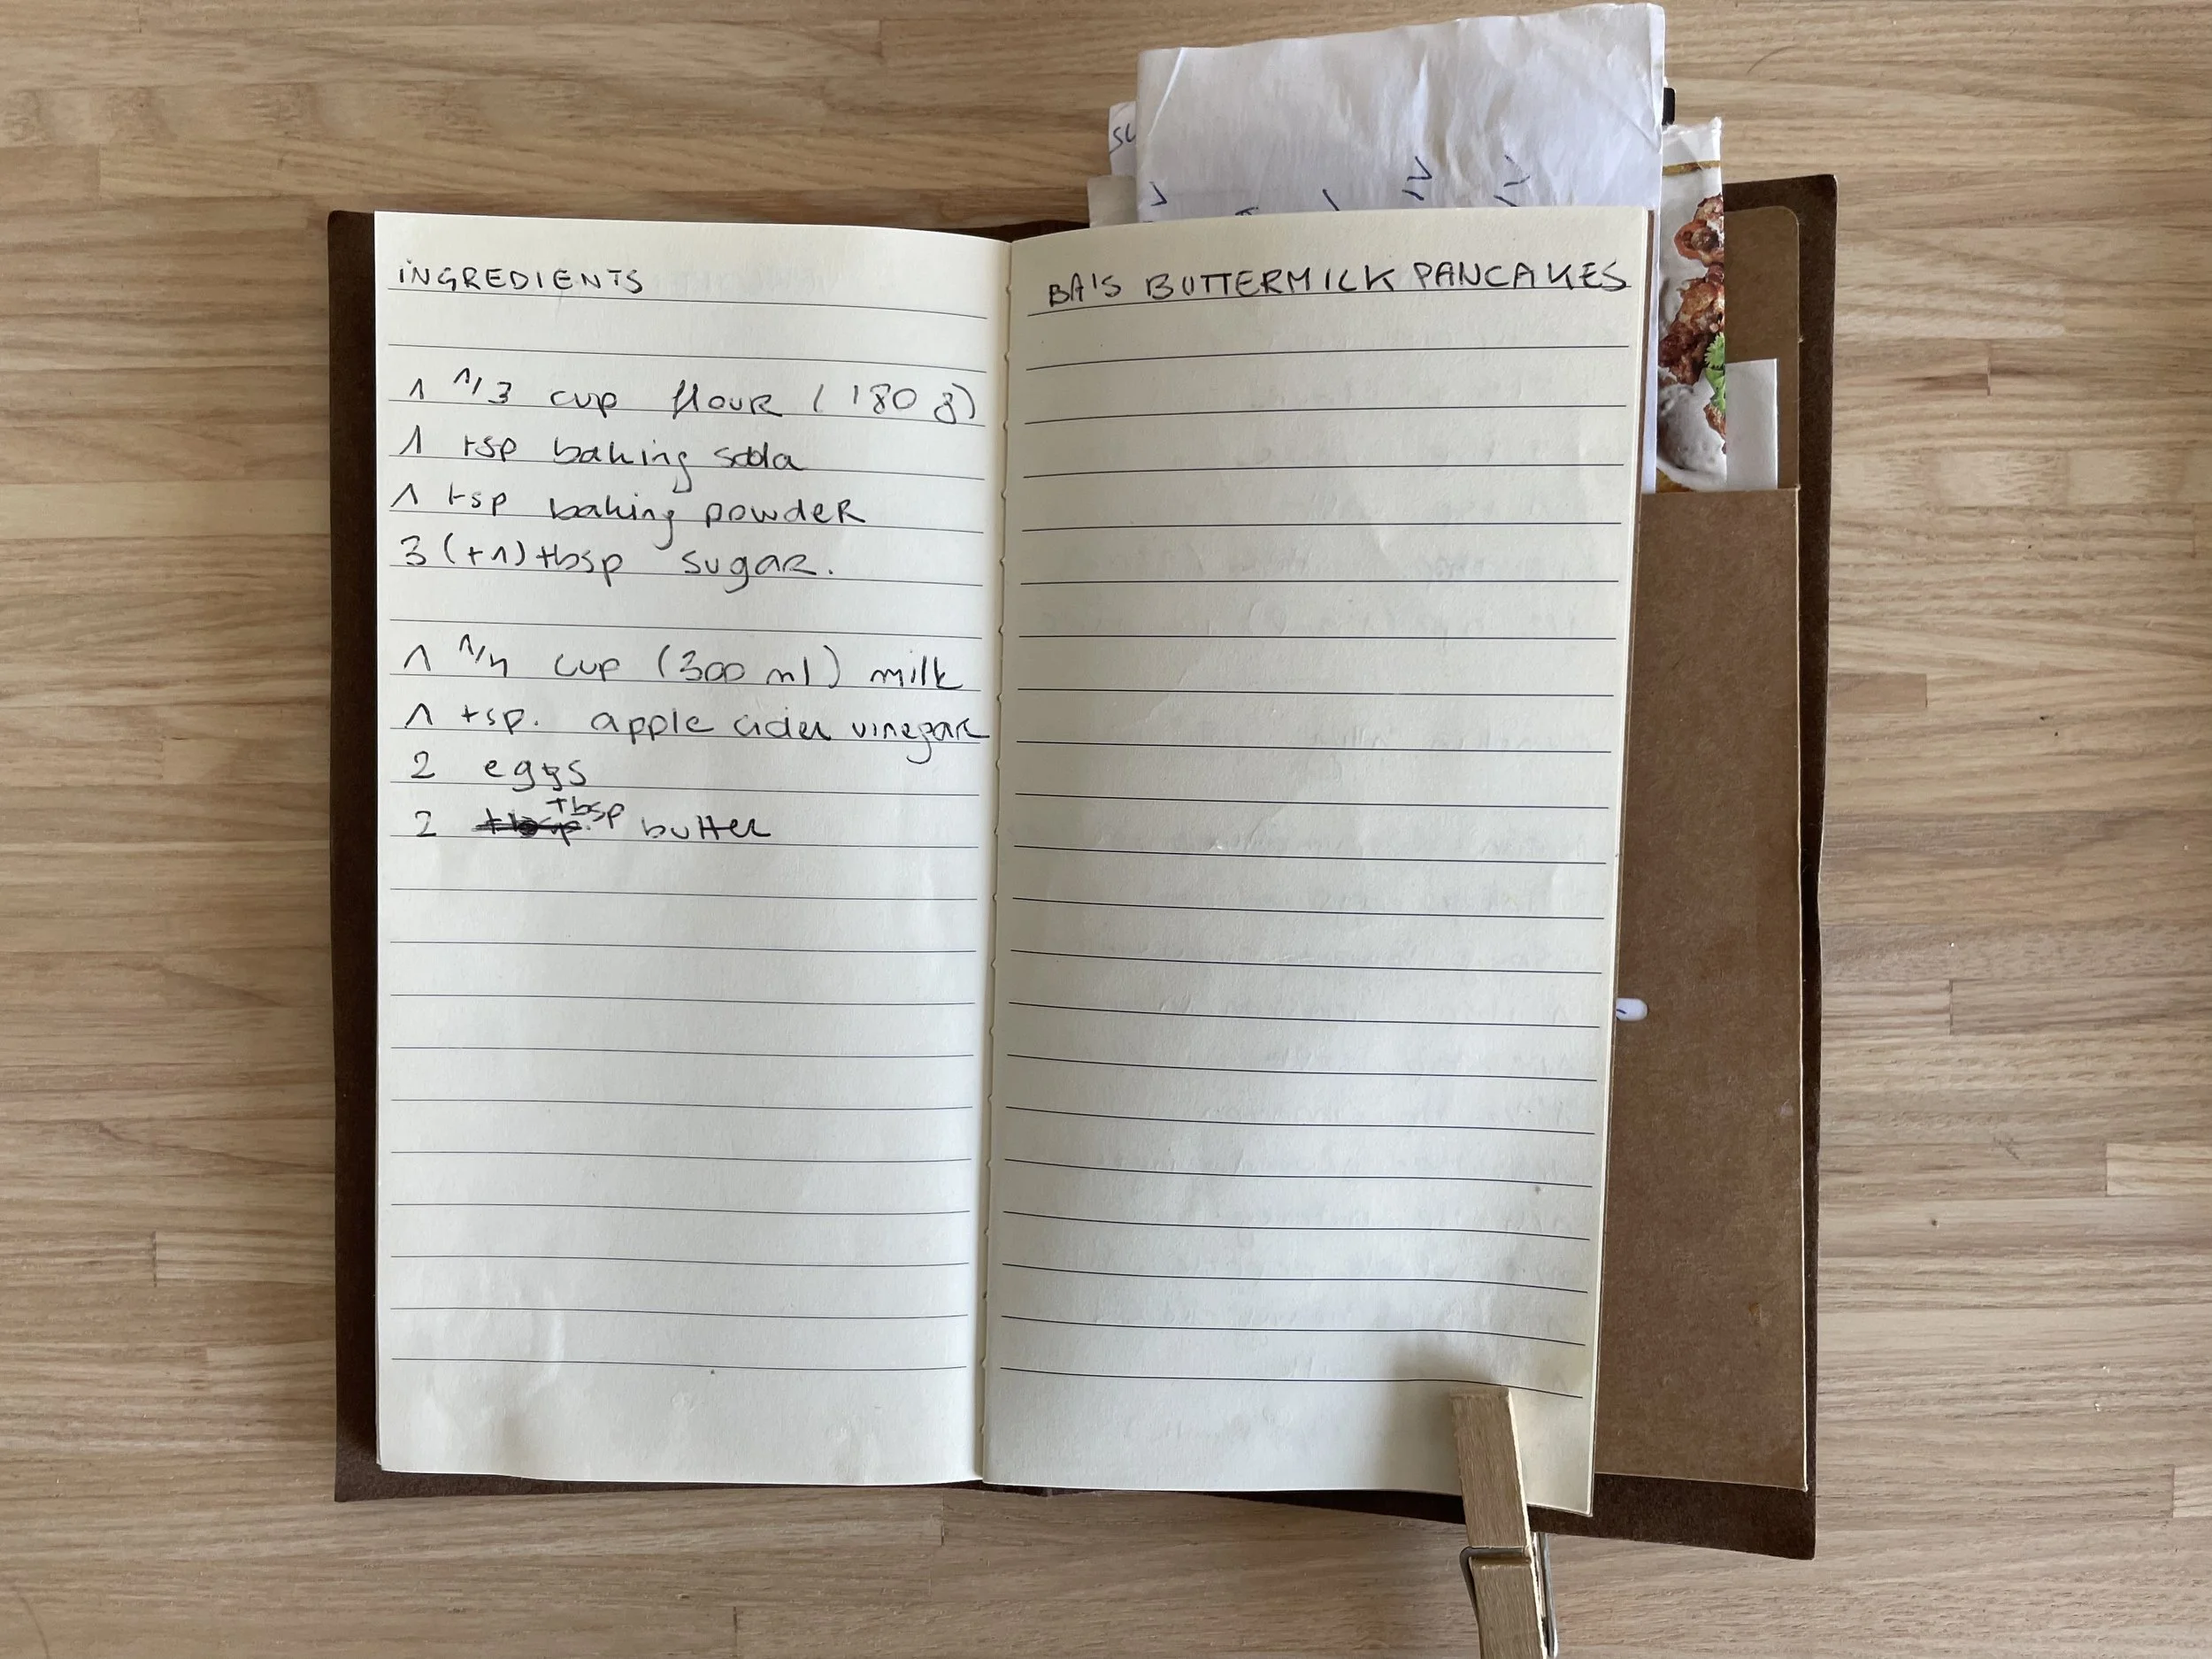 INGREDIENTS
1 1/3 cup flour (180 g)
1 tsp baking soda
1 tsp baking powder
3 (+1) tbsp sugar.
1 1/4 cup (300 ml) milk
1 tsp. apple cider vinegar
2 eggs
2 tbsp butter
BA'S BUTTERMILK PANCAKES